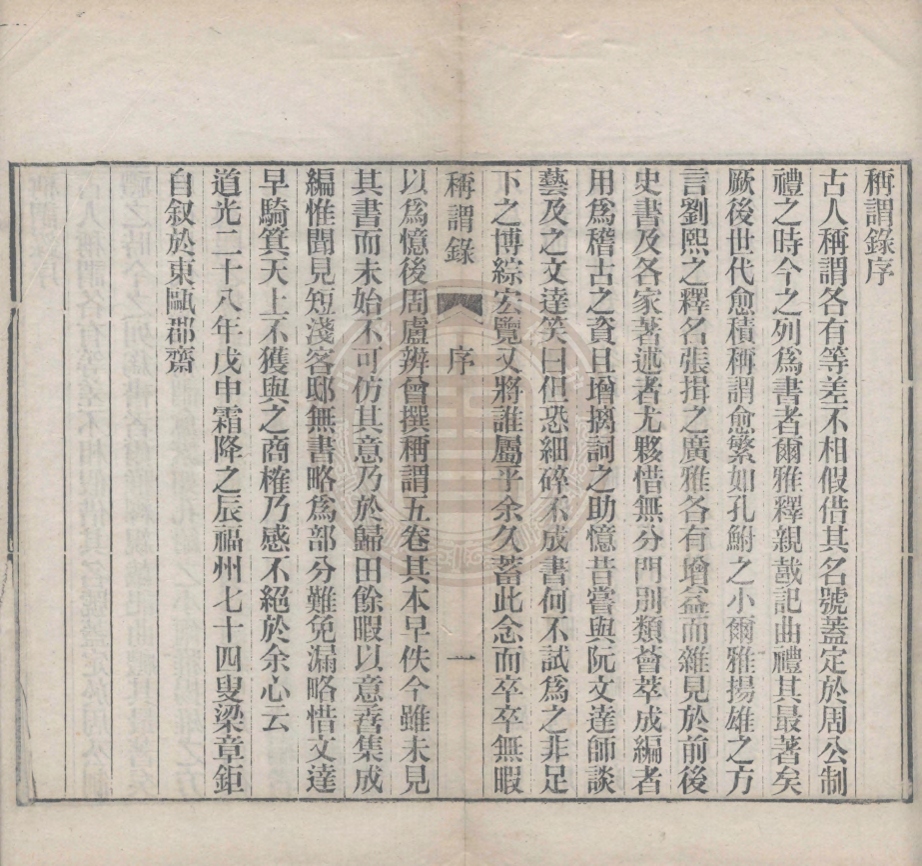 稱謂錄序
古人稱謂各有等差不相假借其名號蓋定於周公制
禮之時今之列爲書者爾雅釋親戴記曲禮其最著矣
厥後世代愈積稱謂愈繁如孔鮒之小爾雅揚雄之方
言劉熙之釋名張揖之廣雅各有增益而雜見於前後
史書及各家著述者尤夥惜無分門別類薈萃成編者
用爲稽古之資且增摛詞之助憶昔嘗與阮文達師談
藝及之文達笑曰但恐細碎不成書何不試爲之非足
下之博綜宏覽又將誰屬乎余久蓄此念而卒卒無暇
稱謂錄 序 一
以爲憶後周盧辨曾撰稱謂五卷其本早佚今雖未見
其書而未始不可仿其意乃於歸田餘暇以意善集成
編惟聞見短淺客邸無書略爲部分難免漏略惜文達
早騎箕天上不獲與之商榷乃感不絕於余心云
道光二十八年戊申霜降之辰福州七十四叟梁章鉅
自叙於東甌郡齋